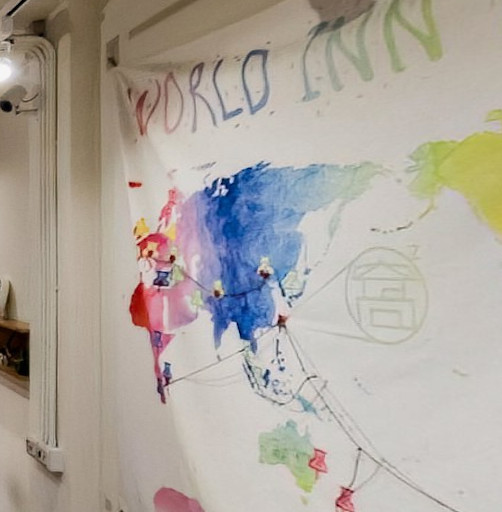 WORLD INN